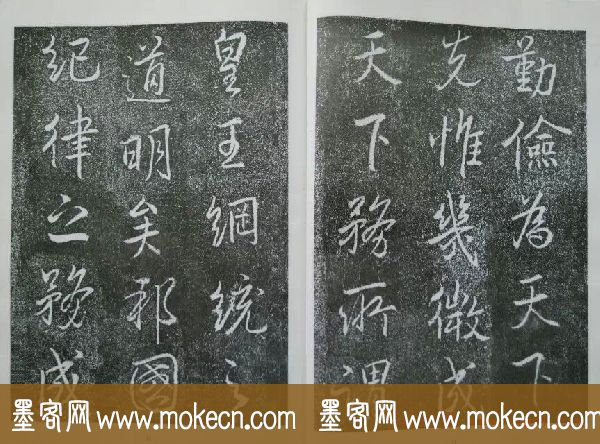 勤儉為天下
先惟幾微成
天下務所謂
皇王綱統之
道明矣邦國
紀律之務成
墨客网 www.mokecn.com
墨客网 www.mokecn.com